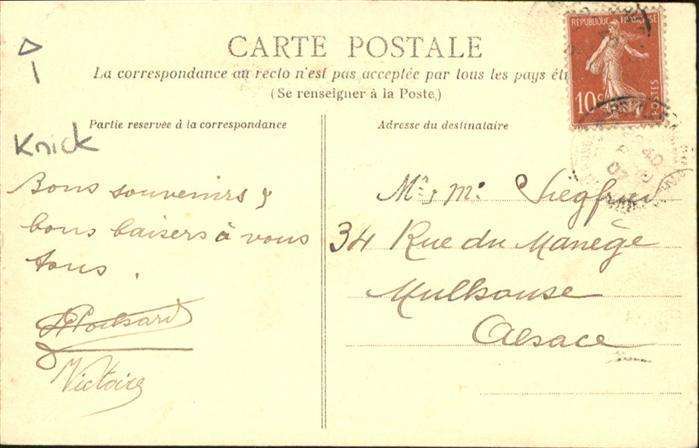 CARTE POSTALE
La correspondance au recto n'est pas acceptée par tous les pays
(Se renseigner à la Poste,)
RÉPUBLIQUE FRANÇAISE
10c
POSTES
Partie reservée à la correspondance
Adresse du destinataire
Knick
Bons souvenirs &
bons baisers à vous
tous.
Victoire
Mr & Me
34 Rue du Manège
Mulhouse
Alsace